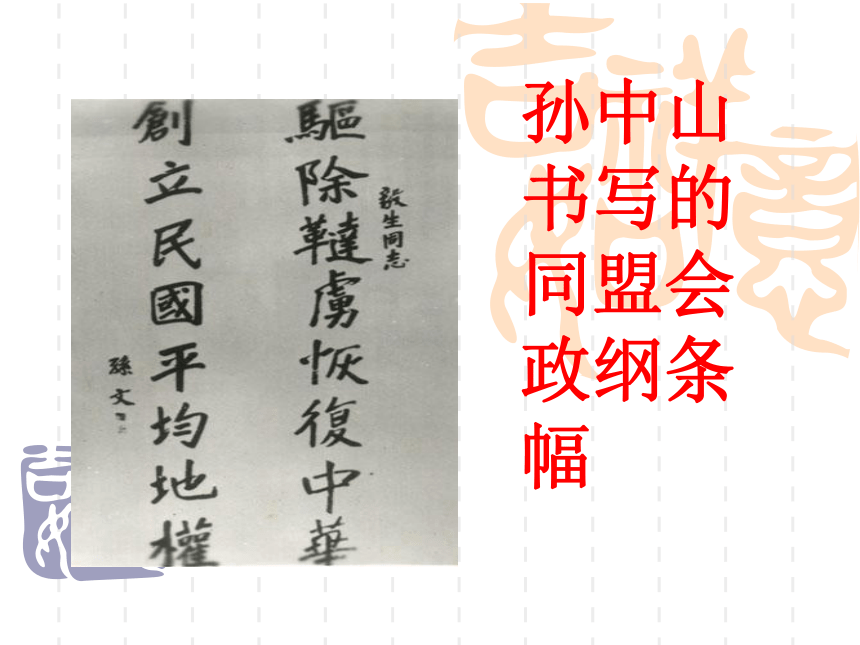 毅生同志
驅除韃虜恢復中華
創立民國平均地權
孫文
孙中山
书写的
同盟会
政纲条
幅